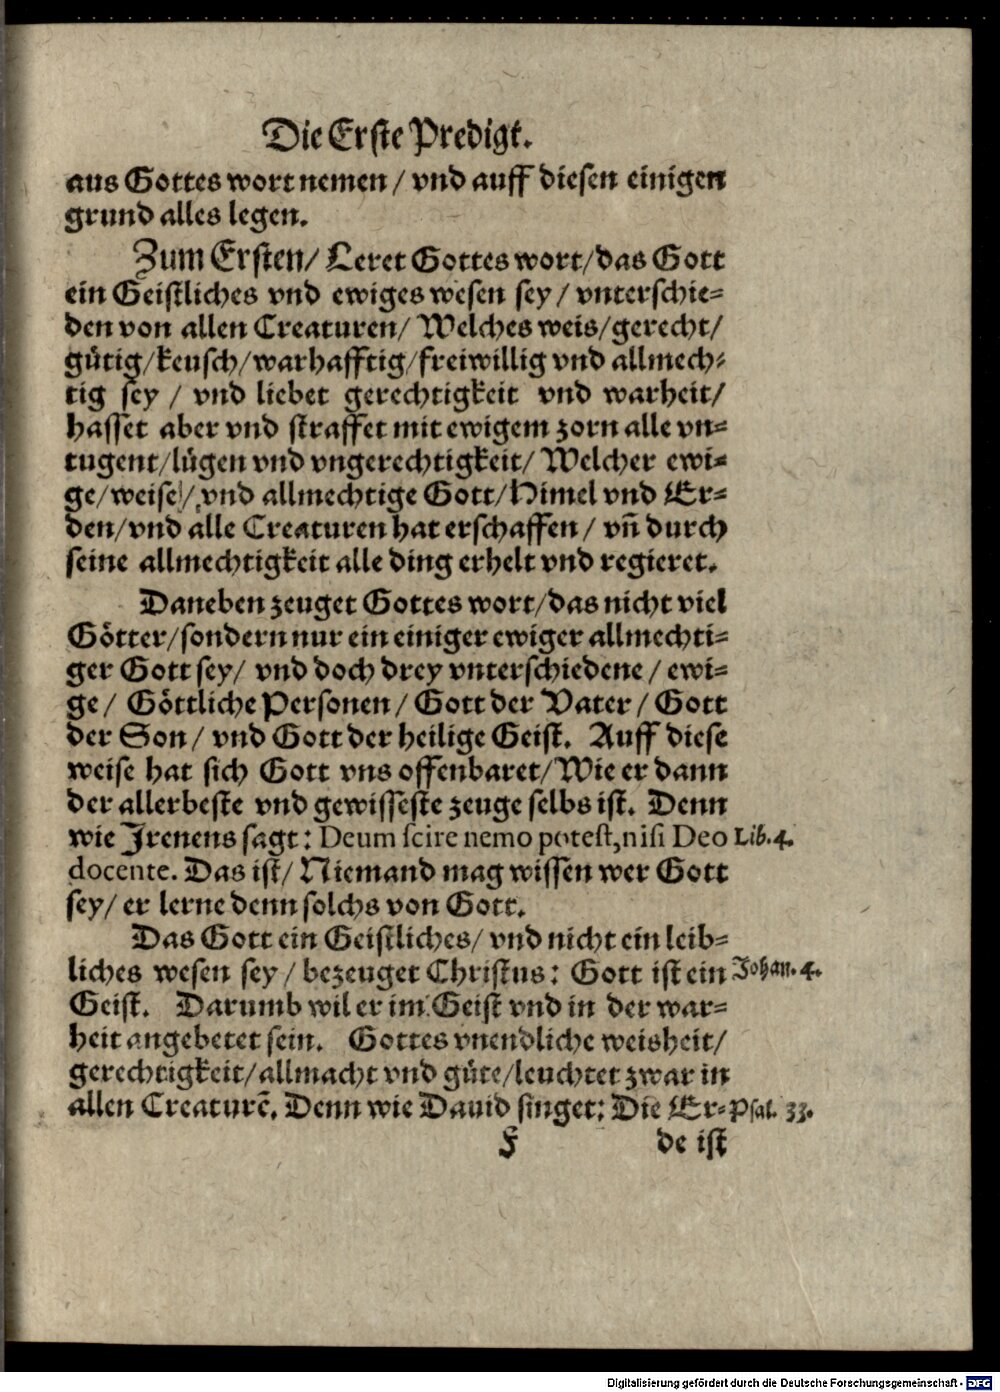 Die Erste Predigt.
aus Gottes wort nemen / vnd auff diesen einigen
grund alles legen.
Zum Ersten / Leret Gottes wort / das Gott
ein Geistliches vnd ewiges wesen sey / vnterschie-
den von allen Creaturen / Welches weis / gerecht /
gütig / keusch / warhafftig / freiwillig vnd allmech-
tig sey / vnd liebet gerechtigkeit vnd warheit /
hasset aber vnd straffet mit ewigem zorn alle vn-
tugent / lügen vnd vngerechtigkeit / Welcher ewi-
ge / weise / vnd allmechtige Gott / Himel vnd Er-
den / vnd alle Creaturen hat erschaffen / vn̄ durch
seine allmechtigkeit alle ding erhelt vnd regieret.
Daneben zeuget Gottes wort / das nicht viel
Götter / sondern nur ein einiger ewiger allmechti-
ger Gott sey / vnd doch drey vnterschiedene / ewi-
ge / Göttliche Personen / Gott der Vater / Gott
der Son / vnd Gott der heilige Geist. Auff diese
weise hat sich Gott vns offenbaret / Wie er dann
der allerbeste vnd gewisseste zeuge selbs ist. Denn
wie Irenens sagt: Deum scire nemo potest, nisi Deo Lib. 4.
docente. Das ist / Niemand mag wissen wer Gott
sey / er lerne denn solchs von Gott.
Das Gott ein Geistliches / vnd nicht ein leib-
liches wesen sey / bezeuget Christus: Gott ist ein Johan. 4.
Geist. Darumb wil er im Geist vnd in der war-
heit angebetet sein. Gottes vnendliche weisheit /
gerechtigkeit / allmacht vnd güte / leuchtet zwar in
allen Creaturē. Denn wie Dauid singet: Die Er- Psal. 33.
F de ist
Digitalisierung gefördert durch die Deutsche Forschungsgemeinschaft - DFG